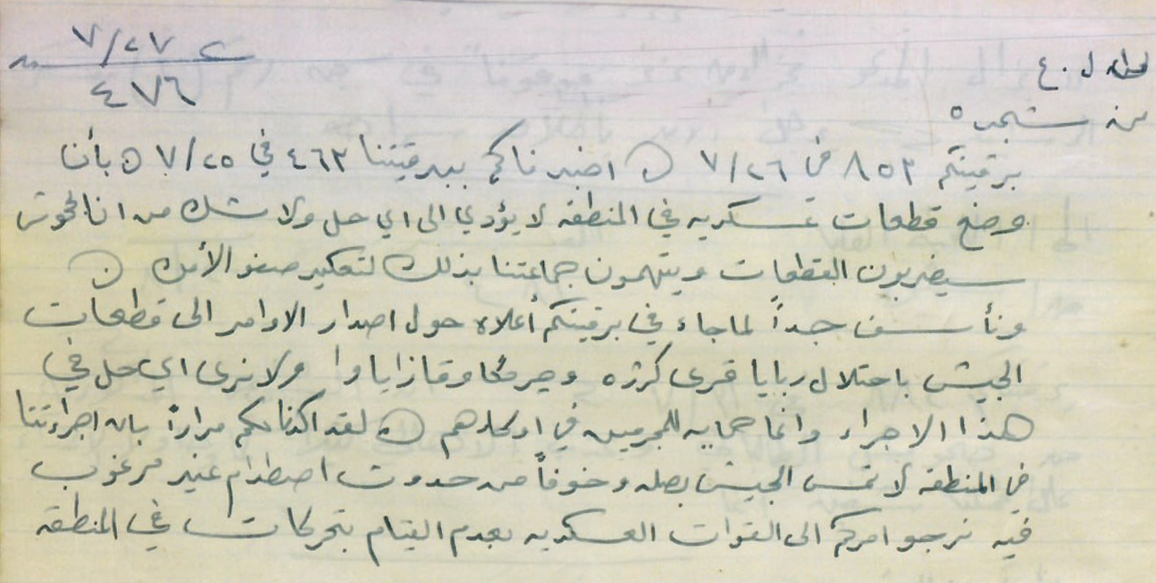 ٧/٢٧
٤٧٦
ل ٤٠
من
برقيتكم ٨٥٣ في ٧/٢٦ ن اخبرناكم ببرقيتنا ٤٦٣ في ٧/٢٥ ن بأن
وضع قطعات عسكريه في المنطقه لا يؤدي الى اي حل ولا شك من ان
سيضربون القطعات ويتهمون جماعتنا بذلك لتعكير صفو الأمن ن
ونأسف جداً لما جاء في برقيتكم أعلاه حول اصدار الاوامر الى قطعات
الجيش باحتلال ربايا قرى كرزه و وقازاياوا ولا نرى اي حل في
هذا الاجراء وانما حمايه للمجرمين في اوكارهم ن لقد اكدنا لكم مراراً بان اجراءتنا
في المنطقه لا تمس الجيش بصله وخوفاً من حدوث اصطدام غير مرغوب
فيه نرجو امركم الى القوات العسكريه بعدم القيام بتحركات في المنطقه